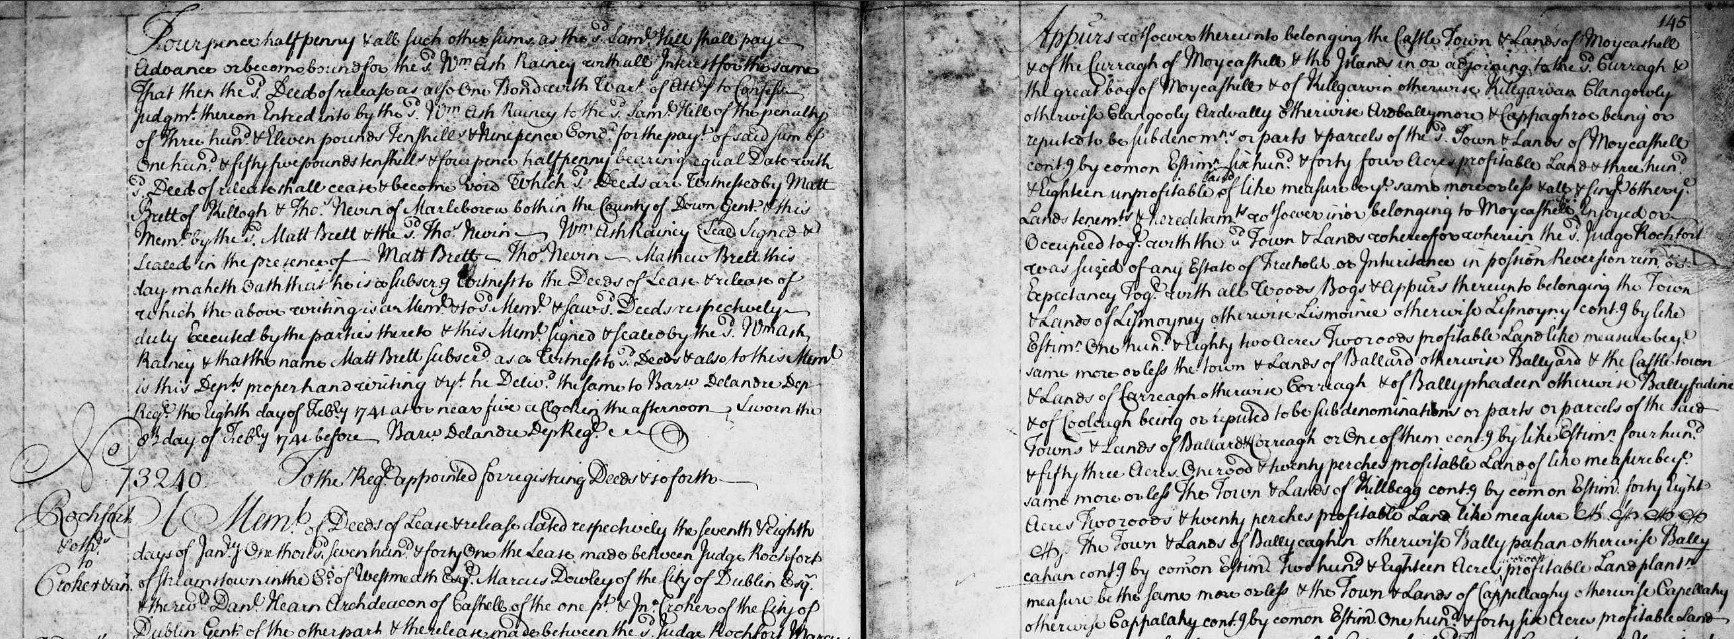 Fourpence half penny & all such other sums as the sd. Saml. Hill shall pay
Advance or become bound for the sd. Wm. Ash Rainey with all Interest for the same
That then the sd. Deed of release as also One Bond with Warr. of Atty to Confess
Judgmt. thereon Entred into by the sd. Wm. Ash Rainey to the sd. Saml. Hill of the penalty
of Three hund. & Eleven pounds Ten shills. & Ninepence Cond. for the paymt. of said sum of
One hund. & fifty five pounds ten shills. & four pence half penny bearing equal Date with
sd. Deed of release shall cease & become void Which sd. Deeds are Witnessed by Matt
Brett of Killogh & Thos. Nevin of Marleborow both in the County of Down Gent. & this
Meml. by the sd. Matt Brett & the sd. Thos. Nevin Wm. Ash Rainey Seal Signed &
Sealed in the presence of Matt Brett Thos. Nevin Mathew Brett this
day maketh Oath that he is a subscrg. Witness to the Deeds of Lease & release of
which the above writing is a Meml. & to sd. Meml. & saw sd. Deeds respectively
duly Executed by the parties thereto & this Meml. signed & sealed by the sd. Wm. Ash
Rainey & that the name Matt Brett subscrd. as a Witness to sd. Deeds & also to this Meml.
is this Depts. proper hand writing & yt. he Delivd. the same to Barw. Delandre Dep
Regr. the Eighth day of Febry 1741 at or near five a Clock in the afternoon Sworn the
8th day of Febry 1741 before Barw. Delandre Dep Regr.
No
73240
To the Regr. appointed for registring Deeds & so forth
Rochfort
& othrs.
to
Croker &an.
A Meml. of Deeds of Lease & release dated respectively the seventh & Eighth
days of Janry One thousd. seven hund. & forty One the Lease made between Judge Rochfort
of Streamstown in the Co. of Westmeath Esqr. Marcus Dowley of the City of Dublin Esqr.
& the revd. Danl. Hearn Archdeacon of Cashell of the one pt. & Jno. Croker of the City of
Dublin Gent. of the other part & the release made between the sd. Judge Rochfort Marcus
145
Appurs. wtsoever thereunto belonging the Castle Town & Lands of Moycashell
& of the Curragh of Moycashell & the Islands in or adjoining to the sd. Curragh &
the great bog of Moycashell & of Killgarvin otherwise Killgarvan Clangowly
otherwise Clangooly Ardvally otherwise Ardballymore & Cappaghroe being or
reputed to be subdenomns. or parts & parcels of the sd. Town & Lands of Moycashell
contg. by comon Estimn. six hund. & forty four Acres profitable Land & three hund.
& Eighteen unprofitable Land of like measure be ye. same more or less & all & singr. other ye.
Lands tenemts. & hereditamts. wtsoever in or belonging to Moycashell Enjoyed or
Occupied togr. with the sd. Town & Lands whereof or wherein the sd. Judge Rochfort
was seized of any Estate of Freehold or Inheritance in possion Reversion remr. or
Expectancy Togr. with all Woods Bogs & Appurs thereunto belonging the Town
& Lands of Lismoyney otherwise Lismoine otherwise Lismoyny contg. by like
Estimn. One hund. & Eighty two Acres Two roods profitable Land like measure be ye.
same more or less the Town & Lands of Ballard otherwise Ballyard & the Castle town
& Lands of Carreagh otherwise Correagh & of Ballyphadeen otherwise Ballyfadine
& of Coolough being or reputed to be subdenominations or parts or parcels of the said
Towns & Lands of Ballard & Correagh or One of them contg. by like Estimn. four hund.
& fifty three Acres One rood & twenty perches profitable Land of like measure be ye.
same more or less The Town & Lands of Killbegg contg. by comon Estimn. forty Eight
Acres Two roods & twenty perches profitable Land like measure &c. &c. &c. &c.
&c. The Town & Lands of Ballycaghin otherwise Ballypahan otherwise Bally
cahan contg. by comon Estimn. Two hund. & Eighteen Acres profitable Land plantn.
measure be the same more or less & the Town & Lands of Cappellaghy otherwise Capellahy
otherwise Cappalahy contg. by comon Estimn. One hund. & forty six Acres profitable Land